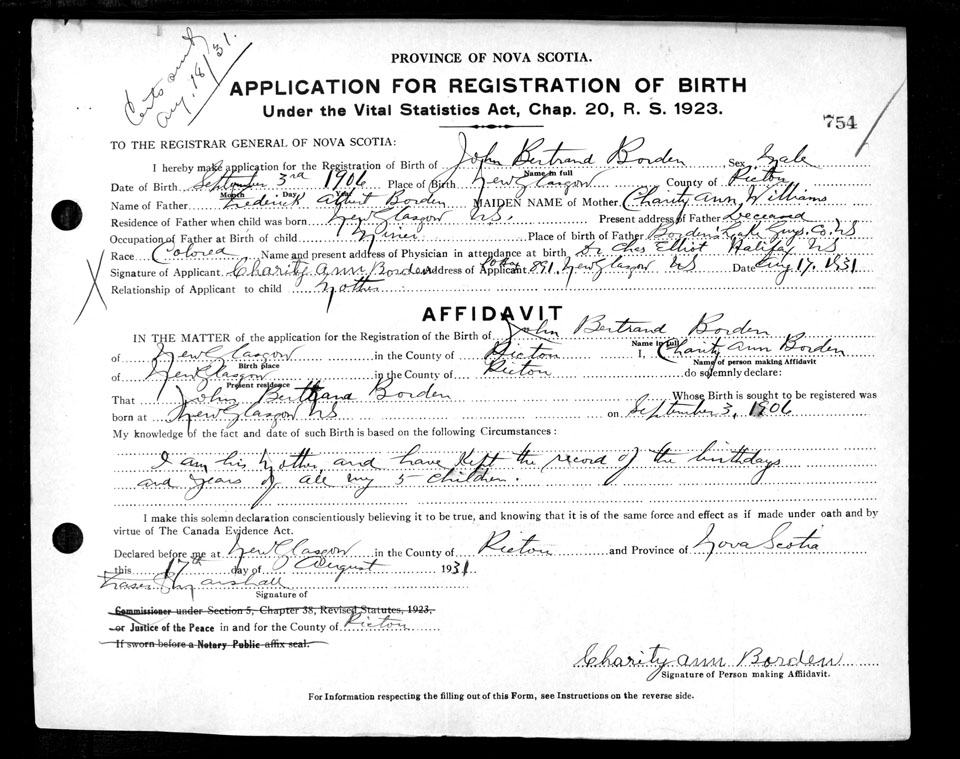 Certs sent
Aug. 18/31.
PROVINCE OF NOVA SCOTIA.
APPLICATION FOR REGISTRATION OF BIRTH
Under the Vital Statistics Act, Chap. 20, R. S. 1923.
754
TO THE REGISTRAR GENERAL OF NOVA SCOTIA:
I hereby make application for the Registration of Birth of John Bertrand Borden Sex Male
Name in full
Date of Birth September 3rd 1906 Place of Birth New Glasgow County of Pictou
Month Day Year
Name of Father Frederick Albert Borden MAIDEN NAME of Mother Charity Ann Williams
Residence of Father when child was born New Glasgow NS. Present address of Father Deceased
Occupation of Father at Birth of child Miner Place of birth of Father Borden's Lake Guys. Co. NS
Race Colored Name and present address of Physician in attendance at birth Dr Chas Elliot Halifax NS
Signature of Applicant Charity Ann Borden Address of Applicant PO Box 891, New Glasgow NS Date Aug 17, 1931
Relationship of Applicant to child Mother
AFFIDAVIT
IN THE MATTER of the application for the Registration of the Birth of John Bertrand Borden
Name in full
of New Glasgow in the County of Pictou I, Charity Ann Borden
Birth place Name of person making Affidavit
of New Glasgow in the County of Pictou do solemnly declare:
Present residence
That John Bertrand Borden Whose Birth is sought to be registered was
born at New Glasgow NS on September 3, 1906
My knowledge of the fact and date of such Birth is based on the following Circumstances:
I am his Mother, and have kept the record of the birthdays
and years of all my 5 children.
I make this solemn declaration conscientiously believing it to be true, and knowing that it is of the same force and effect as if made under oath and by
virtue of The Canada Evidence Act.
Declared before me at New Glasgow in the County of Pictou and Province of Nova Scotia
this 17th day of August 1931
Marshall
Signature of
Commissioner under Section 5, Chapter 38, Revised Statutes, 1923,
or Justice of the Peace in and for the County of Pictou
If sworn before a Notary Public affix seal.
Charity Ann Borden
Signature of Person making Affidavit.
For Information respecting the filling out of this Form, see Instructions on the reverse side.